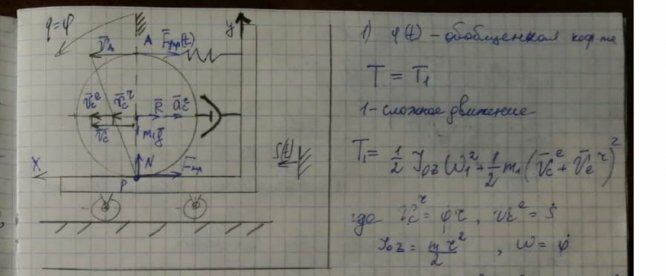 q=φ
V̄_A
A
F̄упр(t)
y
V̄_c^e
V̄_c^r
R̄
ā_c^e
V̄_c
m₁ḡ
S(t)
X
N̄
F̄тр
P
1) φ(t) - обобщенная коор-та
T = T₁
1 - сложное движение
T₁ = 1/2 J_oz ω₁² + 1/2 m₁ (V̄_c^e + V̄_c^r)²
где V_c^r = φ̇r, V_c^e = Ṡ
J_oz = mr²/2, ω = φ̇